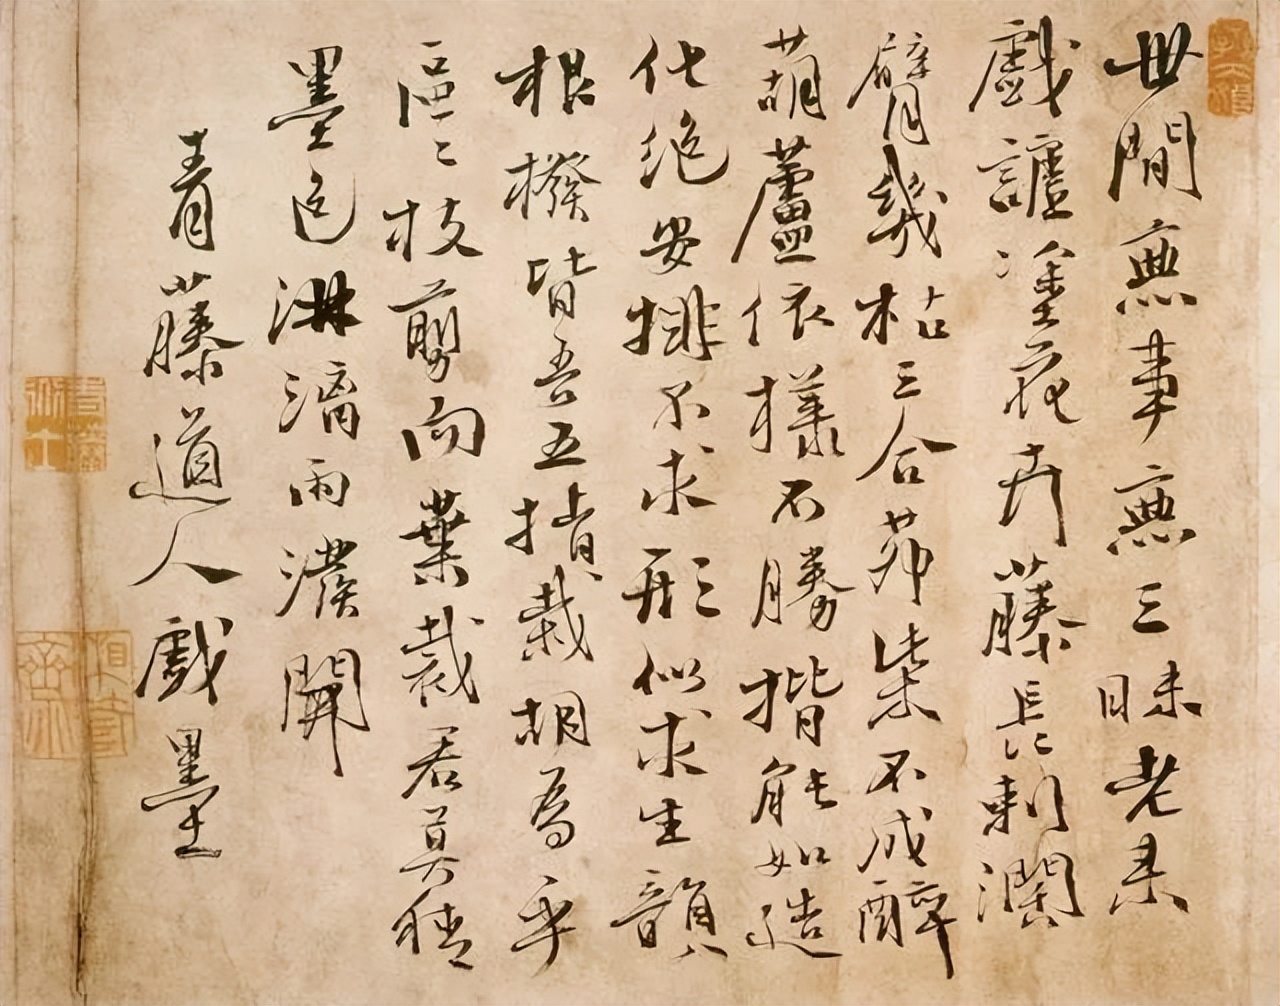 世間無事無三昧老來
戲謔塗花卉藤長刺濶
臂幾枯三合茅柴不成醉
葫蘆依樣不勝揩能如造
化絕安排不求形似求生韻
根撥皆吾五指栽胡為乎
區〻枝剪向葉裁君莫猜
墨色淋漓雨潑開
青藤道人戲墨